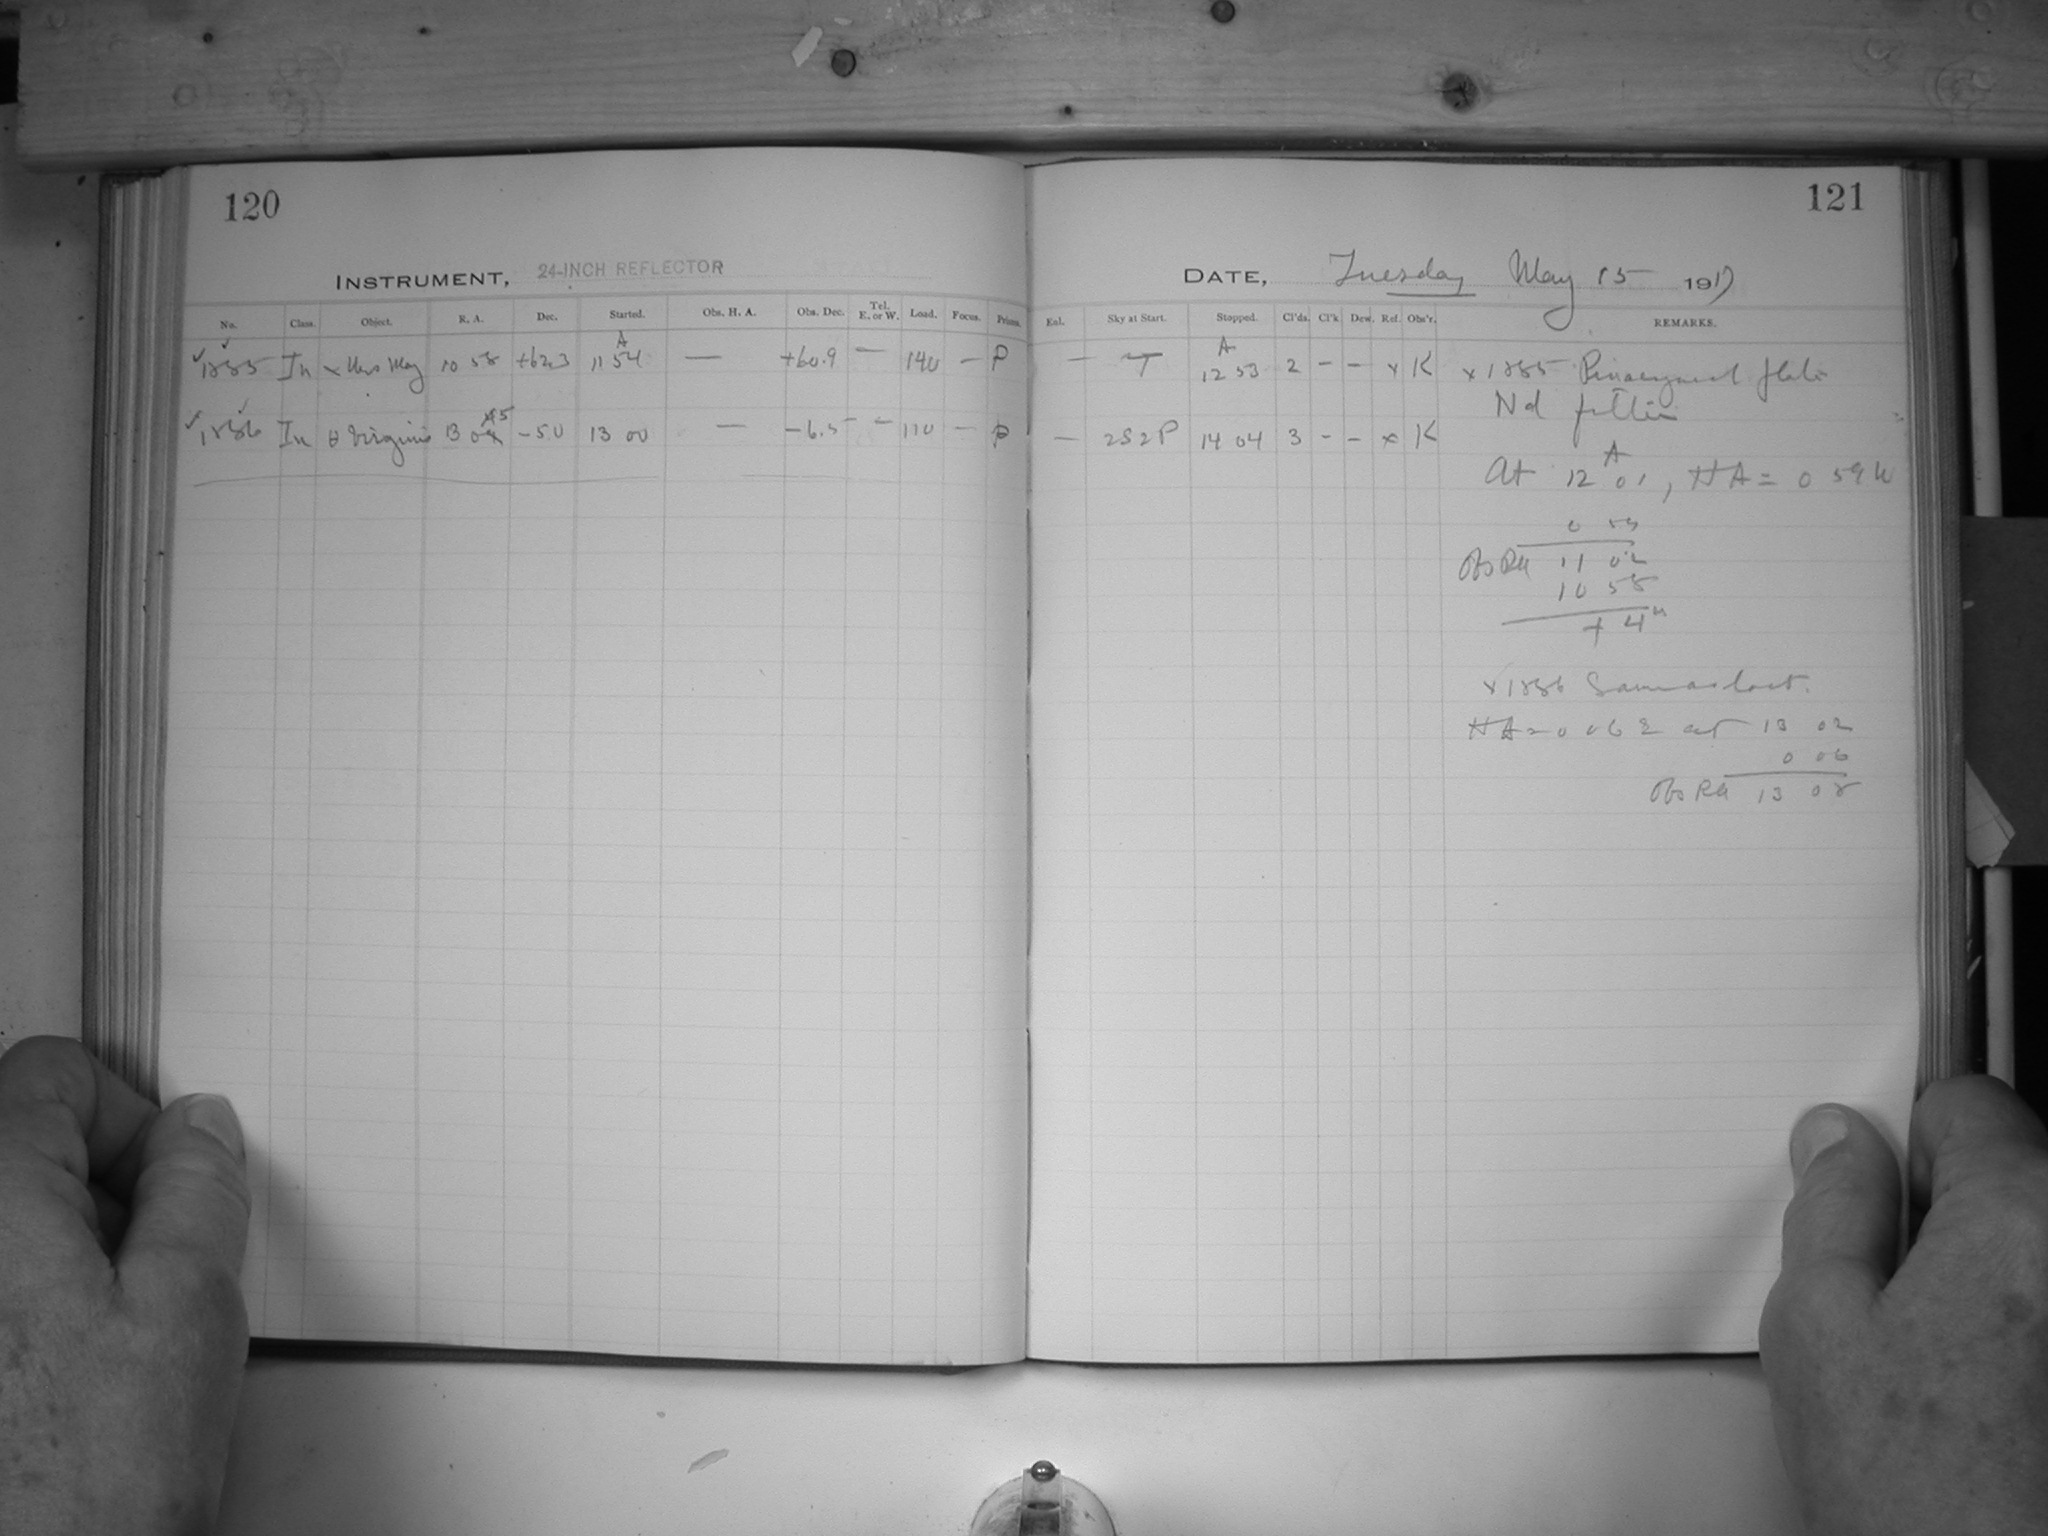 120
INSTRUMENT, 24-INCH REFLECTOR
No. Class. Object. R. A. Dec. Started. Obs. H. A. Obs. Dec. Tel. E. or W. Load. Focus. Prisms.
A
1885 In x Urs Maj 10 58 +62.3 11 54 — +60.9 — 140 — P
1886 In θ Virginis 13 05 -5.0 13 00 — -6.5 — 110 — P
121
DATE, Tuesday May 15 1917
Eol. Sky at Start. Stopped. Cl'ds. Cl'k Dew. Ref. Obs'r. REMARKS.
A
— T 12 53 2 – – x K x 1885 plate
Nd filter
— 2S2P 14 04 3 – – x K
A
At 12 01, HA = 0 59 W
0 59
Obs RA 11 02
10 58
+ 4m
x 1886 Same as last.
HA = 0 06 E at 13 02
0 06
Obs RA 13 08